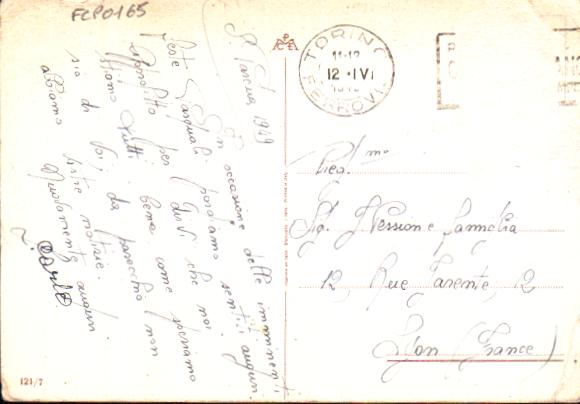 FCP0165
S. Pasqua 1949
In occasione delle imminenti
feste Pasquali porgiamo sentiti auguri.
Approfitto per dirvi che noi
stiamo tutti bene come speriamo
sia di voi da parecchio non
abbiamo vostre notizie.
Nuovamente auguri
TORINO
FERROVIA
11-12
12 · IV
Preg.mo
Sig. Nessione famiglia
12, Rue Tarente, 12
Lyon (France)
121/7